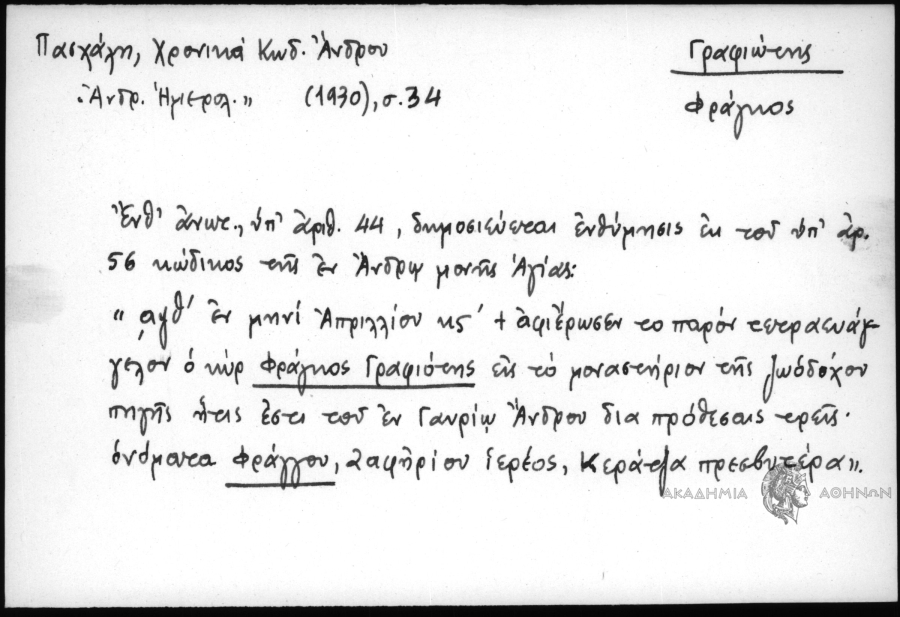 Πασχάλη, Χρονικά Κωδ. Ἄνδρου
Γραφιώτης
"Ἀνδρ. Ἡμερολ." (1930), σ. 34
Φράγκος
Ἔνθ' ἀνωτ., ὑπ' ἀριθ. 44, δημοσιεύεται ἐνθύμησις ἐκ τοῦ ὑπ' ἀρ.
56 κώδικος τῆς ἐν Ἄνδρῳ μονῆς Ἁγίας:
"͵αψθ' ἐν μηνί Ἀπριλλίου κς' + ἀφιἔρωσεν το παρόν τετραευάγ-
γελον ὁ κύρ Φράγκος Γραφιότης εἰς τὸ μοναστήριον τῆς Ζωόδόχου
πηγῆς ἥτις ἔστι τοῦ ἐν Γαυρίῳ Ἄνδρου δια πρόθεσαις τρεῖς·
ὀνόματα Φράγγου, Ζαφηρίου ἱερέος, Κεράτζα πρεσβυτέρα".
ΑΚΑΔΗΜΙΑ ΑΘΗΝΩΝ